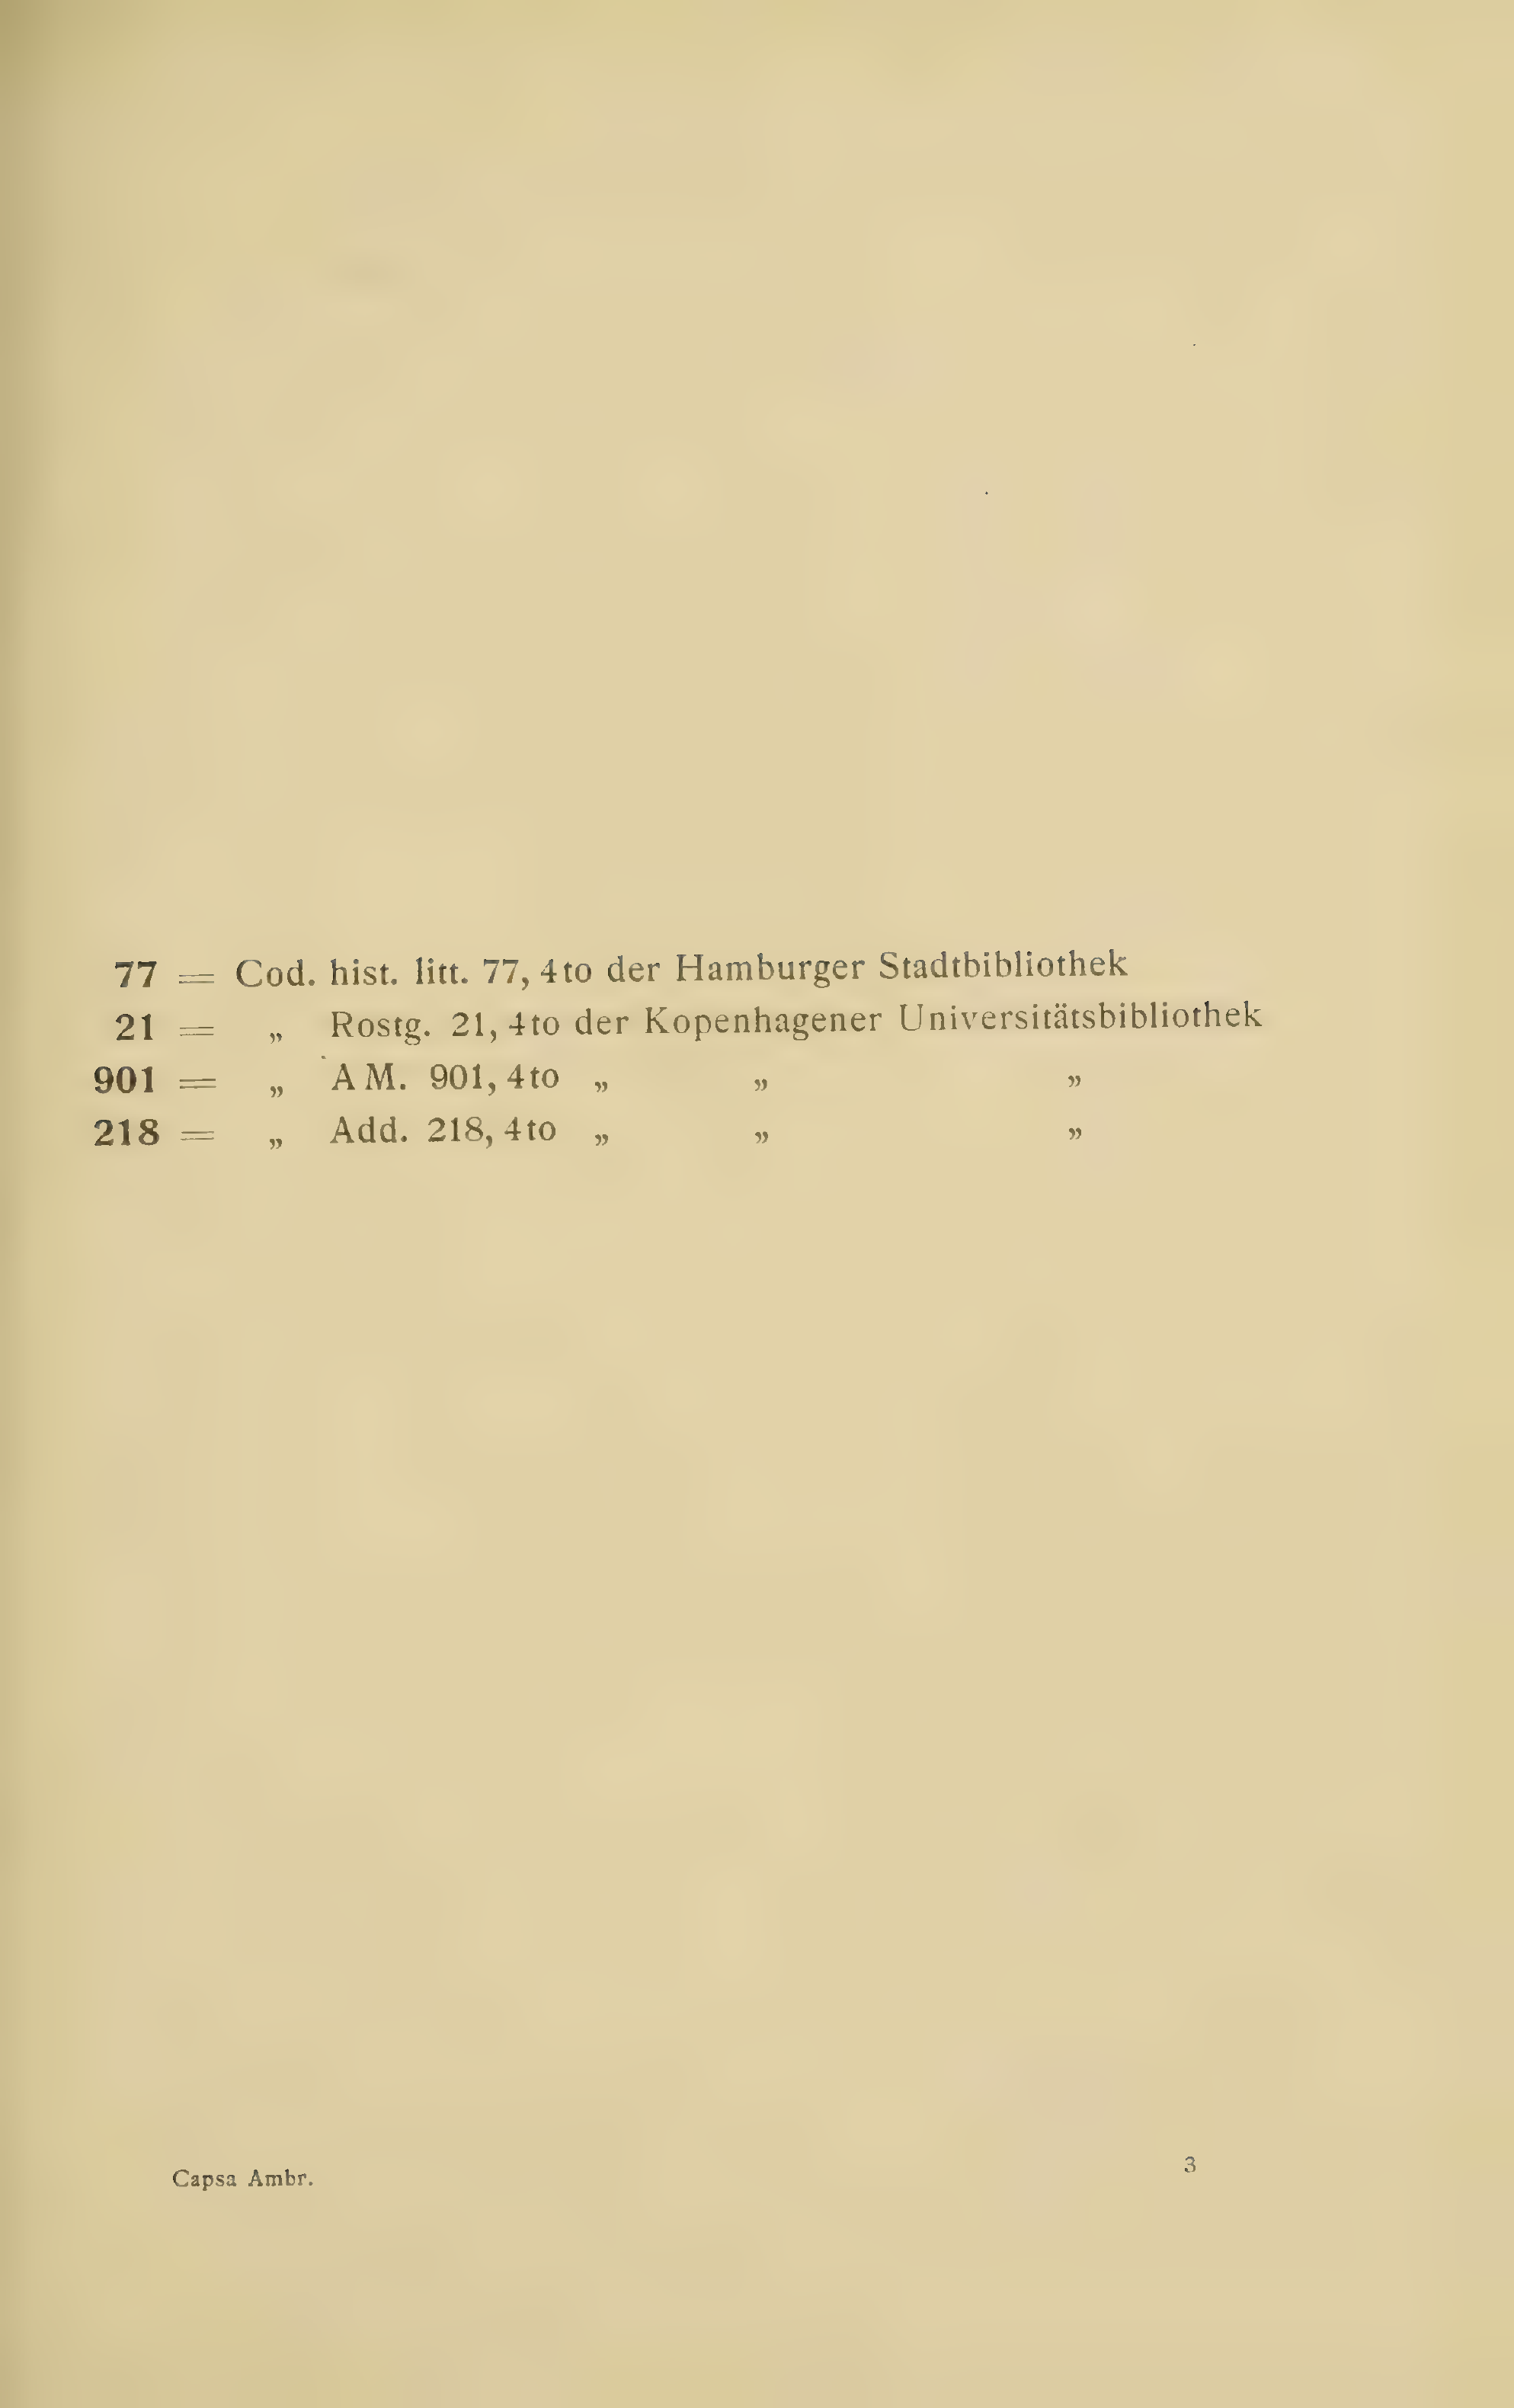 77 = Cod. hist. litt. 77, 4to der Hamburger Stadtbibliothek
21 = „ Rostg. 21, 4to der Kopenhagener Universitätsbibliothek
901 = „ AM. 901, 4to „ „ „
218 = „ Add. 218, 4to „ „ „
Capsa Ambr. 3